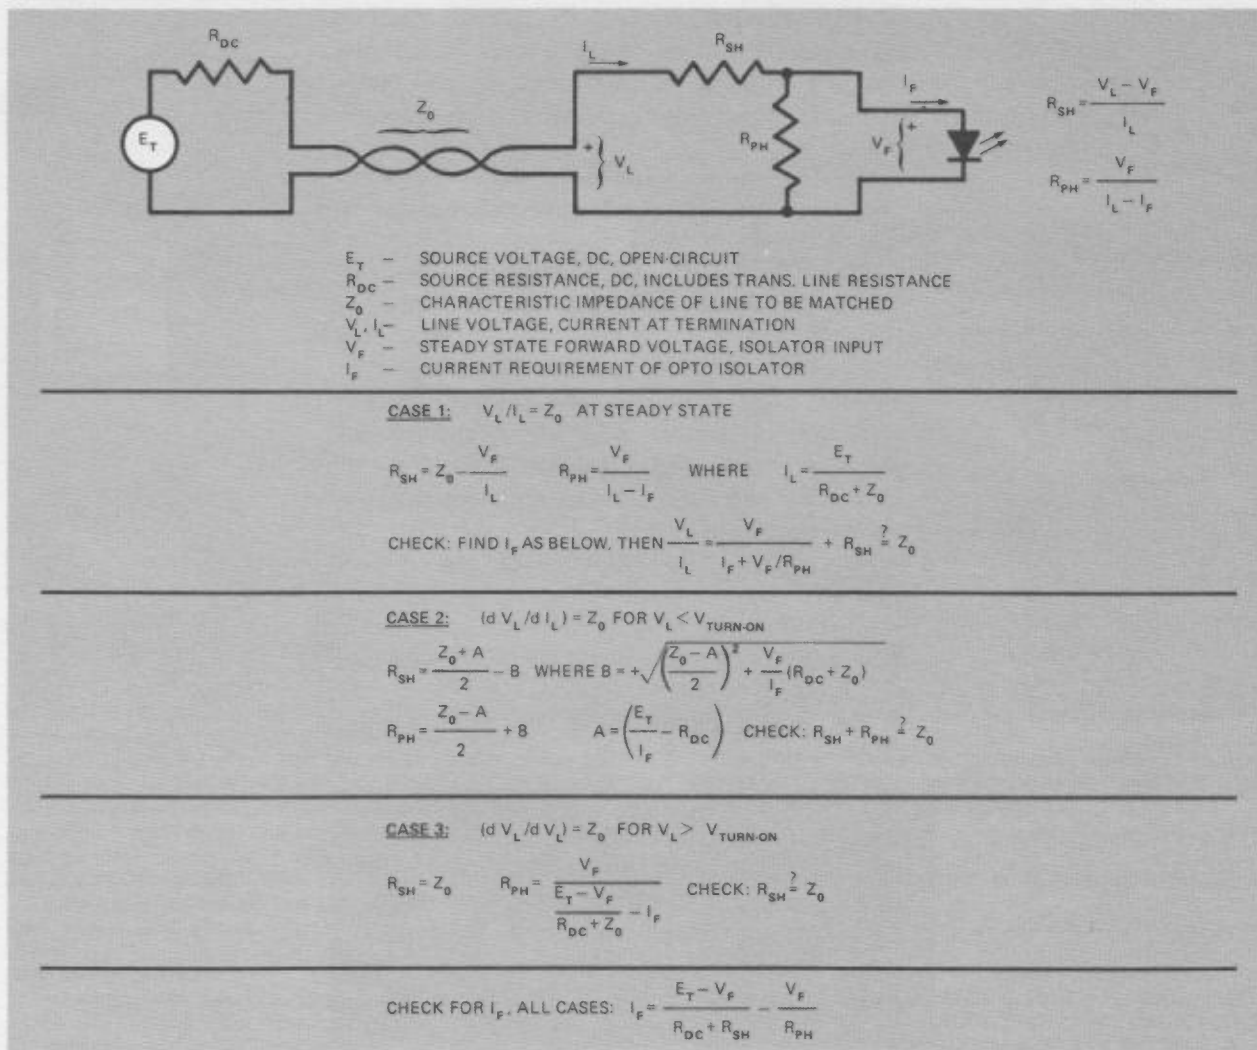 R_DC
E_T
Z_0
+ V_L
I_L
R_SH
R_PH
I_F
V_F +
R_SH = (V_L – V_F) / I_L
R_PH = V_F / (I_L – I_F)
E_T – SOURCE VOLTAGE, DC, OPEN-CIRCUIT
R_DC – SOURCE RESISTANCE, DC, INCLUDES TRANS. LINE RESISTANCE
Z_0 – CHARACTERISTIC IMPEDANCE OF LINE TO BE MATCHED
V_L, I_L – LINE VOLTAGE, CURRENT AT TERMINATION
V_F – STEADY STATE FORWARD VOLTAGE, ISOLATOR INPUT
I_F – CURRENT REQUIREMENT OF OPTO ISOLATOR
CASE 1: V_L/I_L = Z_0 AT STEADY STATE
R_SH = Z_0 – V_F / I_L R_PH = V_F / (I_L – I_F) WHERE I_L = E_T / (R_DC + Z_0)
CHECK: FIND I_F AS BELOW, THEN V_L / I_L = V_F / (I_F + V_F/R_PH) + R_SH ?= Z_0
CASE 2: (d V_L/d I_L) = Z_0 FOR V_L < V_TURN-ON
R_SH = (Z_0 + A) / 2 – B WHERE B = +√(((Z_0 – A) / 2)² + V_F / I_F (R_DC + Z_0))
R_PH = (Z_0 – A) / 2 + B A = (E_T / I_F – R_DC) CHECK: R_SH + R_PH ?= Z_0
CASE 3: (d V_L/d V_L) = Z_0 FOR V_L > V_TURN-ON
R_SH = Z_0 R_PH = V_F / ((E_T – V_F) / (R_DC + Z_0) – I_F) CHECK: R_SH ?= Z_0
CHECK FOR I_F, ALL CASES: I_F = (E_T – V_F) / (R_DC + R_SH) – V_F / R_PH